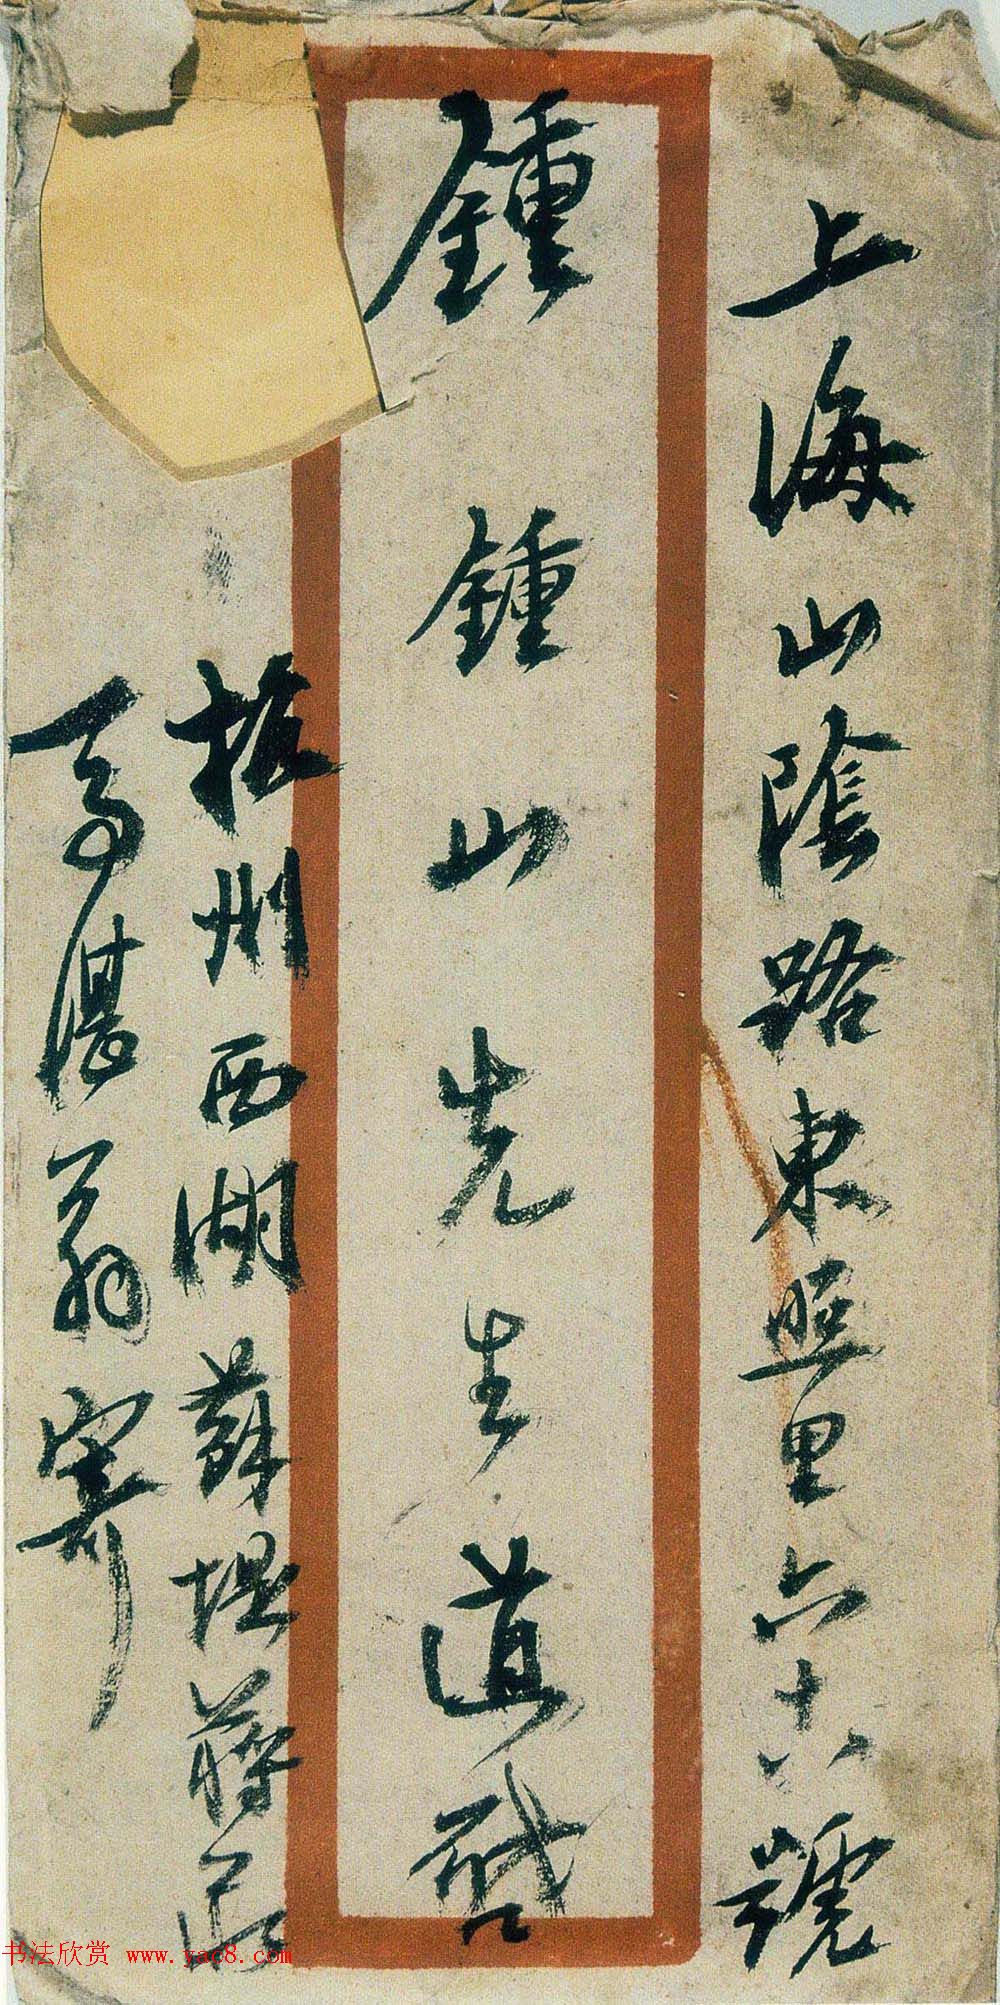 上海山陰路東照里六十六號
鍾鍾山先生道啓
杭州西湖蘇堤蔣莊
馬湛翁寄
书法欣赏 www.yac8.com